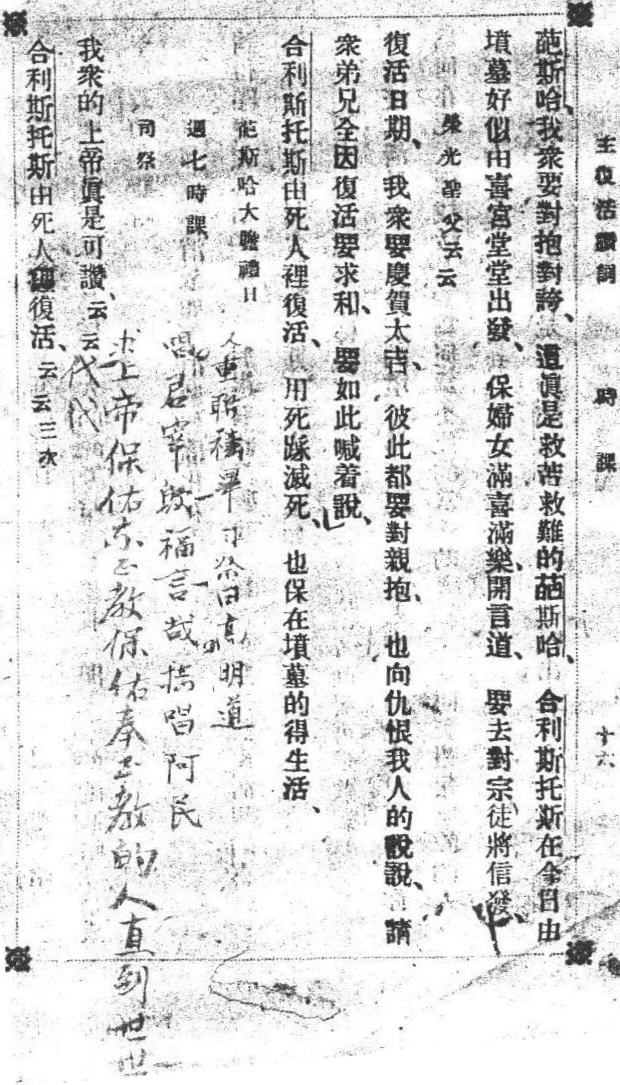 主復活讚詞 時課 十六
葩斯哈、我衆要對抱對誇、這眞是救苦救難的葩斯哈、合利斯托斯在今日由
墳墓好似由喜宮堂堂出發、保婦女滿喜滿樂、開言道、要去對宗徒將信發、
榮光聖父云云
復活日期、我衆要慶賀太吉、彼此都要對親抱、也向仇恨我人的說說、請
衆弟兄全因復活要求和、要如此喊着說、
合利斯托斯由死人裡復活、用死踩滅死、也保在墳墓的得生活、
葩斯哈大瞻禮日
週七時課
重聯禱畢司祭曰 明道
唱君宰 福言哉 唱阿民
司祭
上帝保佑 正教保佑奉正教的人直到世世
代代
我衆的上帝眞是可讚、云云
合利斯托斯由死人裡復活、云云三次